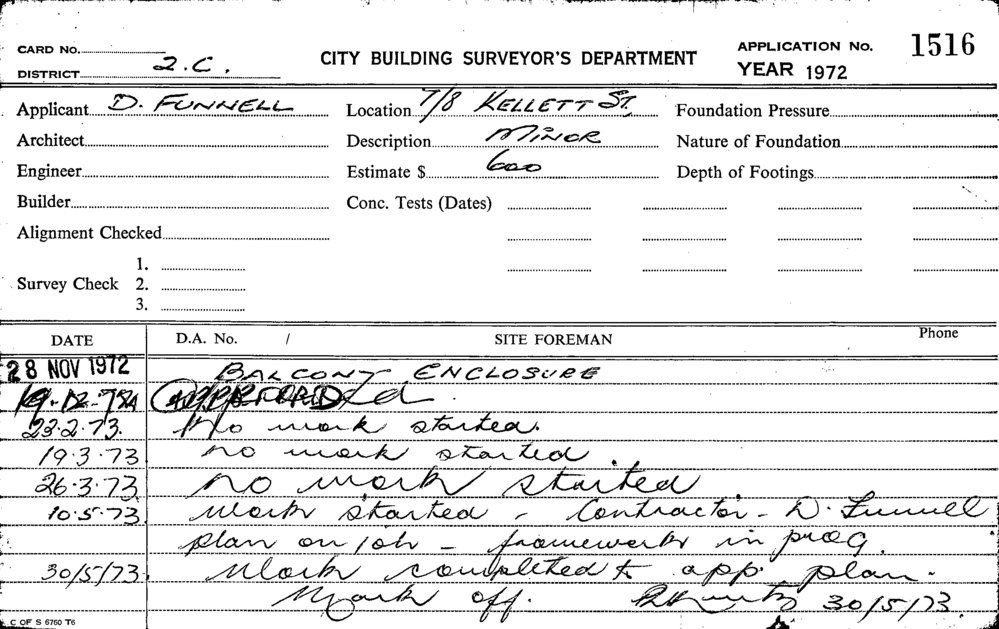 CARD NO.
DISTRICT 2.C.
CITY BUILDING SURVEYOR'S DEPARTMENT
APPLICATION No. 1516
YEAR 1972
Applicant D. FUNNELL
Location 7/8 KELLETT ST,
Foundation Pressure
Architect
Description MINOR
Nature of Foundation
Engineer
Estimate $ 600
Depth of Footings
Builder
Conc. Tests (Dates)
Alignment Checked
1.
Survey Check 2.
3.
DATE D.A. No. / SITE FOREMAN Phone
28 NOV 1972 BALCONY ENCLOSURE
23.2.73. No work started.
19.3.73 no work started.
26.3.73 no work started
10.5.73 Work started - Contractor - D. Funnell
plan on job - framework in prog.
30/5/73 Work completed to app. plan.
Mark off. 30/5/73.
C OF S 6760 T6